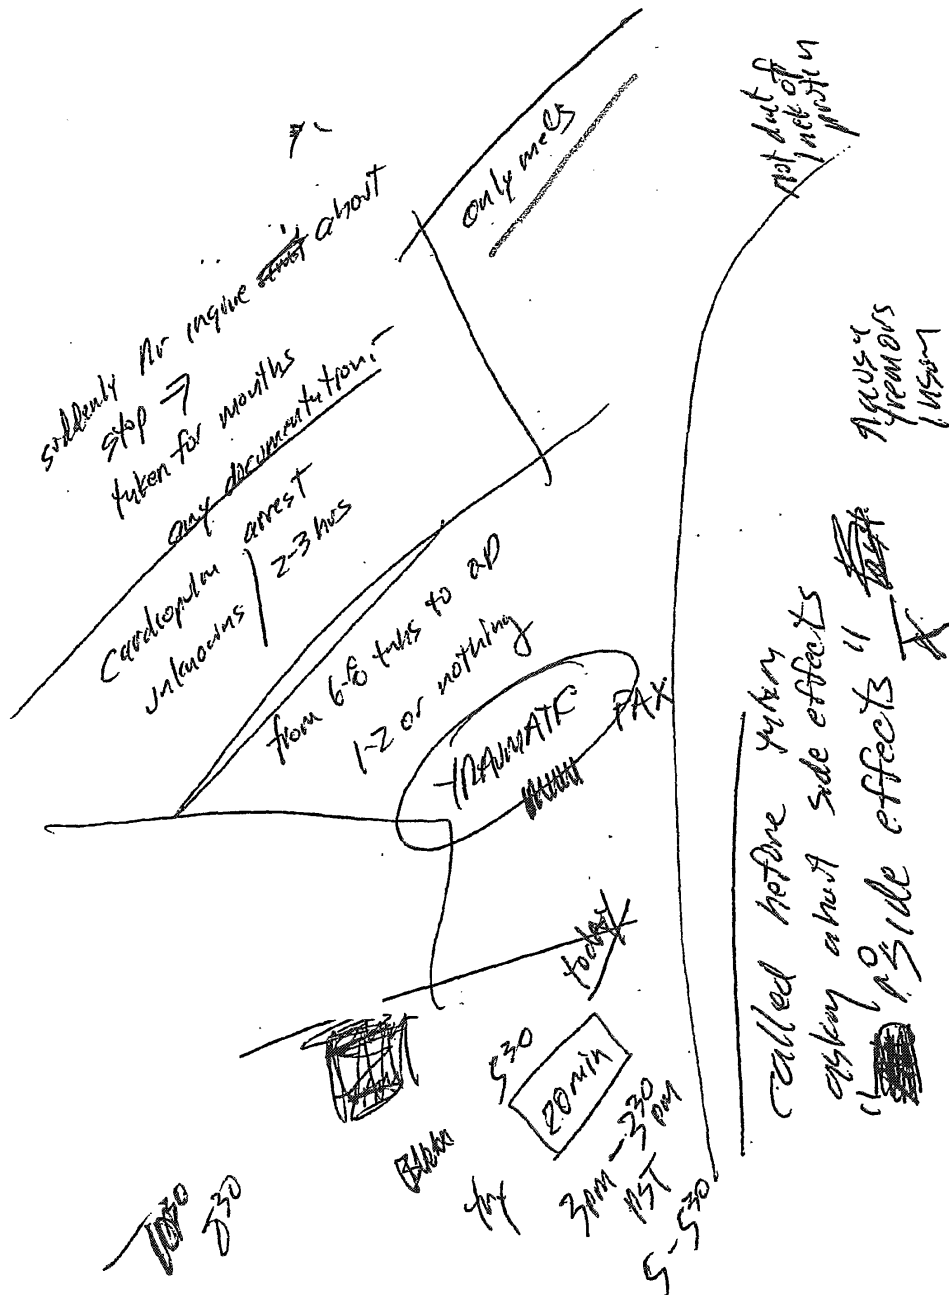 only meds
suddenly Nr inquire about
stop →
taken for months
any documentation:
Cardiopulm arrest
unknowns
2-3 hrs
from 6-8 tabs to
1-2 or nothing
TRAUMATIC
PAX
today
530
20 min
3pm - 330 pm
PST
5-530
try
530
not
lack of
protein
tremors
called before
asking about side effects
" no side effects "